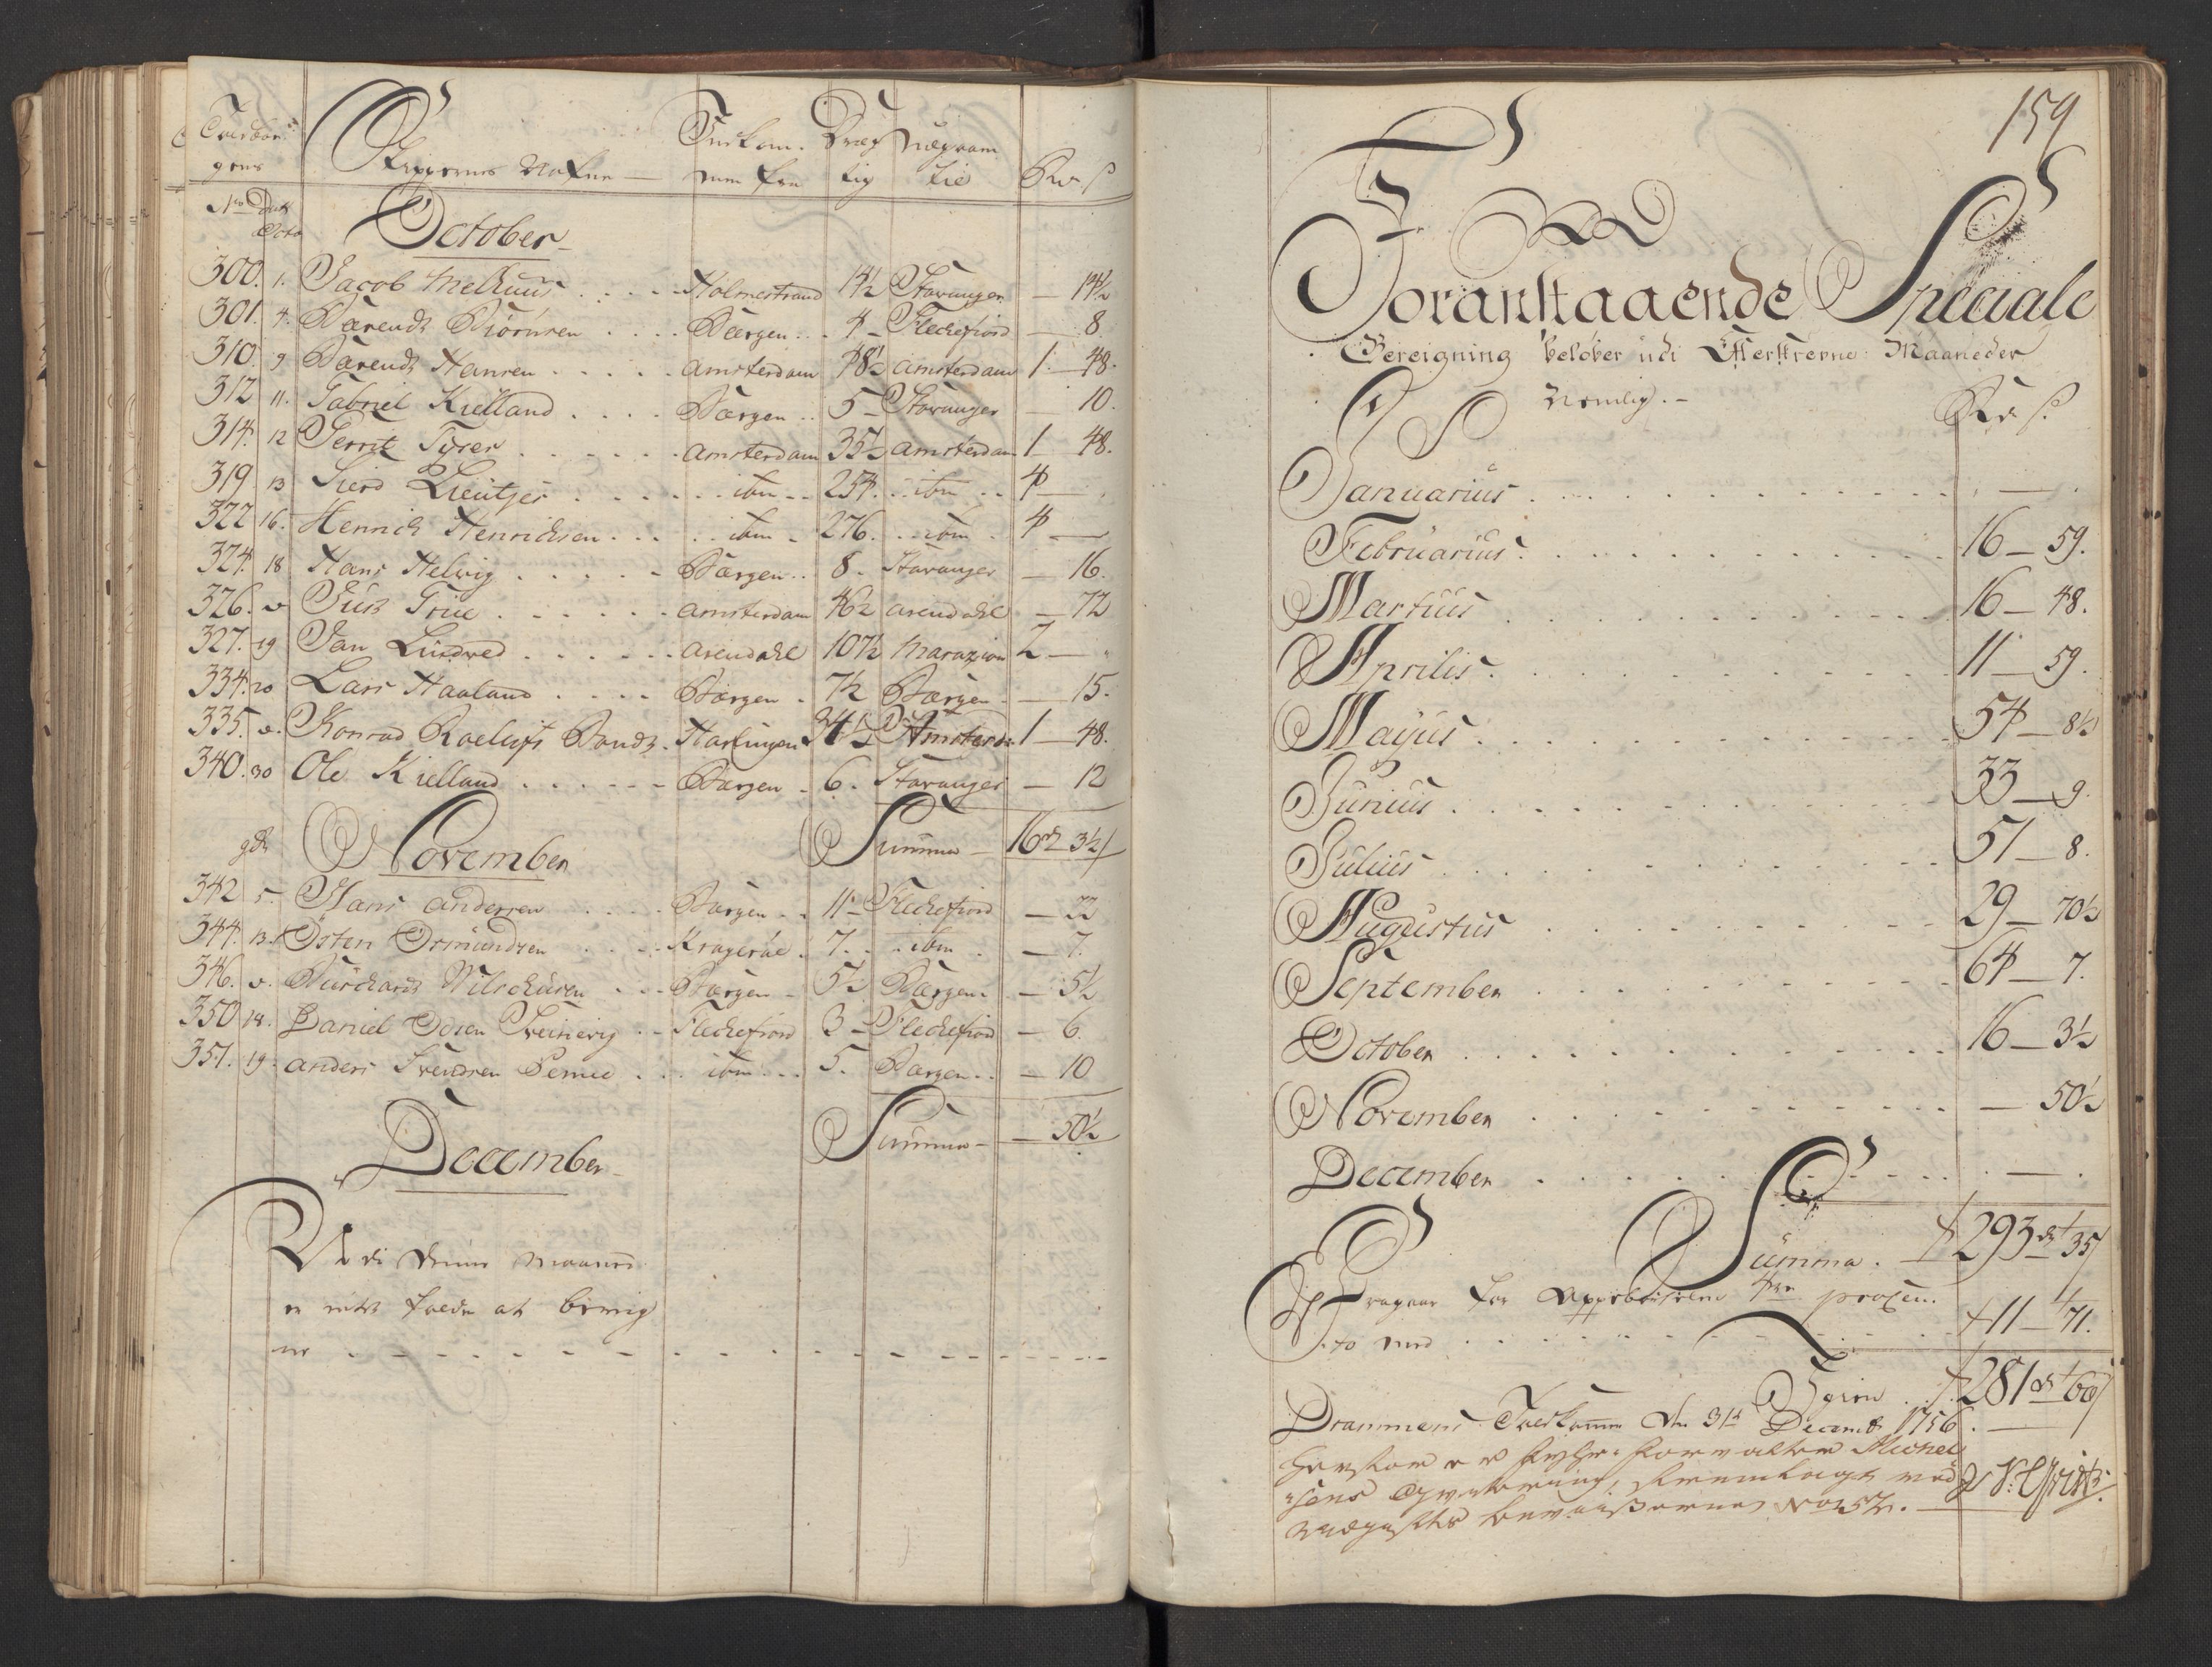 Toldbo-
gens
Skippernes Nafne
Indkom-
men fra
Dræg-
tig
Udgaaen
til
Rdr ß
No Dat
Octobr
October
300. 1. Jacob Melhuus . . . . Holmestrand 14½ Stavanger — 14½
301. 4. Bærendt Biörnsen . . . . Bærgen . . 4 — Fleckefiord — 8
310. 9 Bärendt Hansen . . . . . Amsterdam 48½ Amsterdam 1 — 48.
312 11. Gabriel Kielland . . . . Bærgen . . 5 — Stavanger — 10.
314. 12 Gerrit Tyser . . . . . Amsterdam 35½ Amsterdam 1 — 48.
319. 13 Sierd Lieutjes . . . . . . ibm . . 254. . ibm . . 4 —
322 16. Henrich Henrichsen . . . . . ibm . 276. . . ibm . 4 —
324. 18 Hans Helvig . . . . . Bærgen . . 8. Stavanger — 16.
326. d. Just Friie . . . . . . Amsterdam 46½ Arendahl — 72
327. 19 Jan Lindved . . . . . . Arendahl 107½ Marazion 2 —
334. 20 Lars Haaland . . . . Bærgen . 7½ Bærgen . — 15.
335. d. Konrad Roelufs Bandt. Harlingen 34½ Amsterd. 1 — 48.
340. 30 Ole Kielland . . . . . . Bærgen . 6. Stavanger — 12
Summa — 16 rd 3½ ß
9br
November
342 5. Hans Andersen . . . . Bærgen . . 11 — Fleckefiord — 22
344. 13. Östen Osmundsen . . . Kragerøe . 7. . . ibm . — 7.
346. d. Burchard Wilschusen . . . Bærgen — 5½ Bærgen . — 5½
350 14. Daniel Odsen Sveinevig . . Fleckefiord 3 — Fleckefiord — 6.
351. 19. Anders Svendsen Pernee . . . ibm . . . 5. Bærgen . . — 10
Summa — — 50½
December
Udi denne Maaned
er intet falden at bereig
ne
159
Foranstaaende Speciale
Bereigning beløber udi Efterskrevne Maaneder
Nemlig. —
Rdr ß.
Januarius . . . . —
Februarius . . . . 16 — 59.
Martius . . . . 16 — 48.
Aprilis . . . . 11 — 59.
Mayus . . . . 54 — 8½
Junius . . . . 33 — 9.
Julius . . . . 51 — 8.
Augustus . . . . 29 — 70½
September . . . . 64 — 7.
October . . . . 16 — 3½
November . . . . — 50½
December . . . . —
Summa . 293 rd 35 ß
Fragaar for Opperbørselen 4re procen-
to med . . . . 11 — 71.
Igien . . 281 rd 60 ß
Drammens Toldkammer den 31te Decembr 1756.
Michel
sens
No 157.